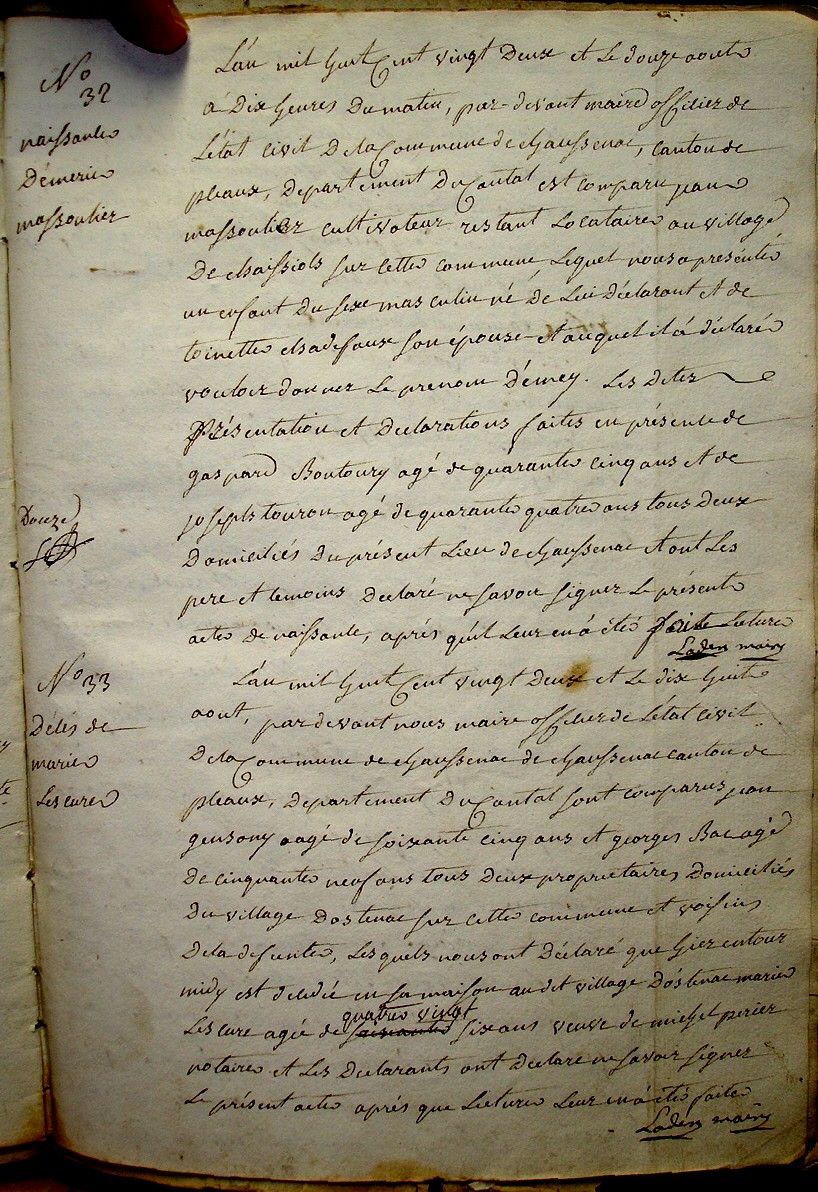 No
32
naissante
D'émerie
massoulier
L'an mil huit Cent vingt Deux et Le douze aoute
à Dix heures Du matin, par-devant maire officier de
L'état Civil De la Commune de chaussenac, Canton de
pleaux, Departement Du Cantal est comparu jean
massoulier cultivateur restant Locataire au village
De chaissiols sur cette commune, Lequel nous a présenté
un enfant Du sexe masculin né De Lui Déclarant et de
toinette chadefaux son épouse et auquel il a déclaré
vouloir donner Le prenom D'émey. Les Dites
Présentation et Declarations faites en présence de
gaspard Boutoury agé de quarante cinq ans et de
joseph touron agé de quarante quatre ans tous Deux
Domiciliés Du présent Lieu de chaussenac et ont Les
pere et temoins Declaré ne savoir signer Le présent
acte de naissante, aprés qu'il Leur en á été faite Lecture
Laden maire
Douze
No 33
Déces de
marie
Lescure
L'an mil huit Cent vingt Deux et Le dix huit
aout, par devant nous maire officier de L'état Civil
De la Commune de chaussenac de chaussenac canton de
pleaux, Departement Du Cantal sont comparus jean
gensony aagé de soixante cinq ans et georges Bac agé
De cinquante neuf ans tous Deux proprietaires Domiciliés
Du village Dostenac sur cette commune et voisins
De la defunte, Lesquels nous ont Déclaré que hier entour
midy est décédée en sa maison au dit village D'ostenac marie
quatre vingt
Lescure agée de soixante six ans veuve de michel perier
notaire et Les Declarants ont Declaré ne savoir signer
Le présent acte aprés que Lecture Leur en á été faite
Laden maire